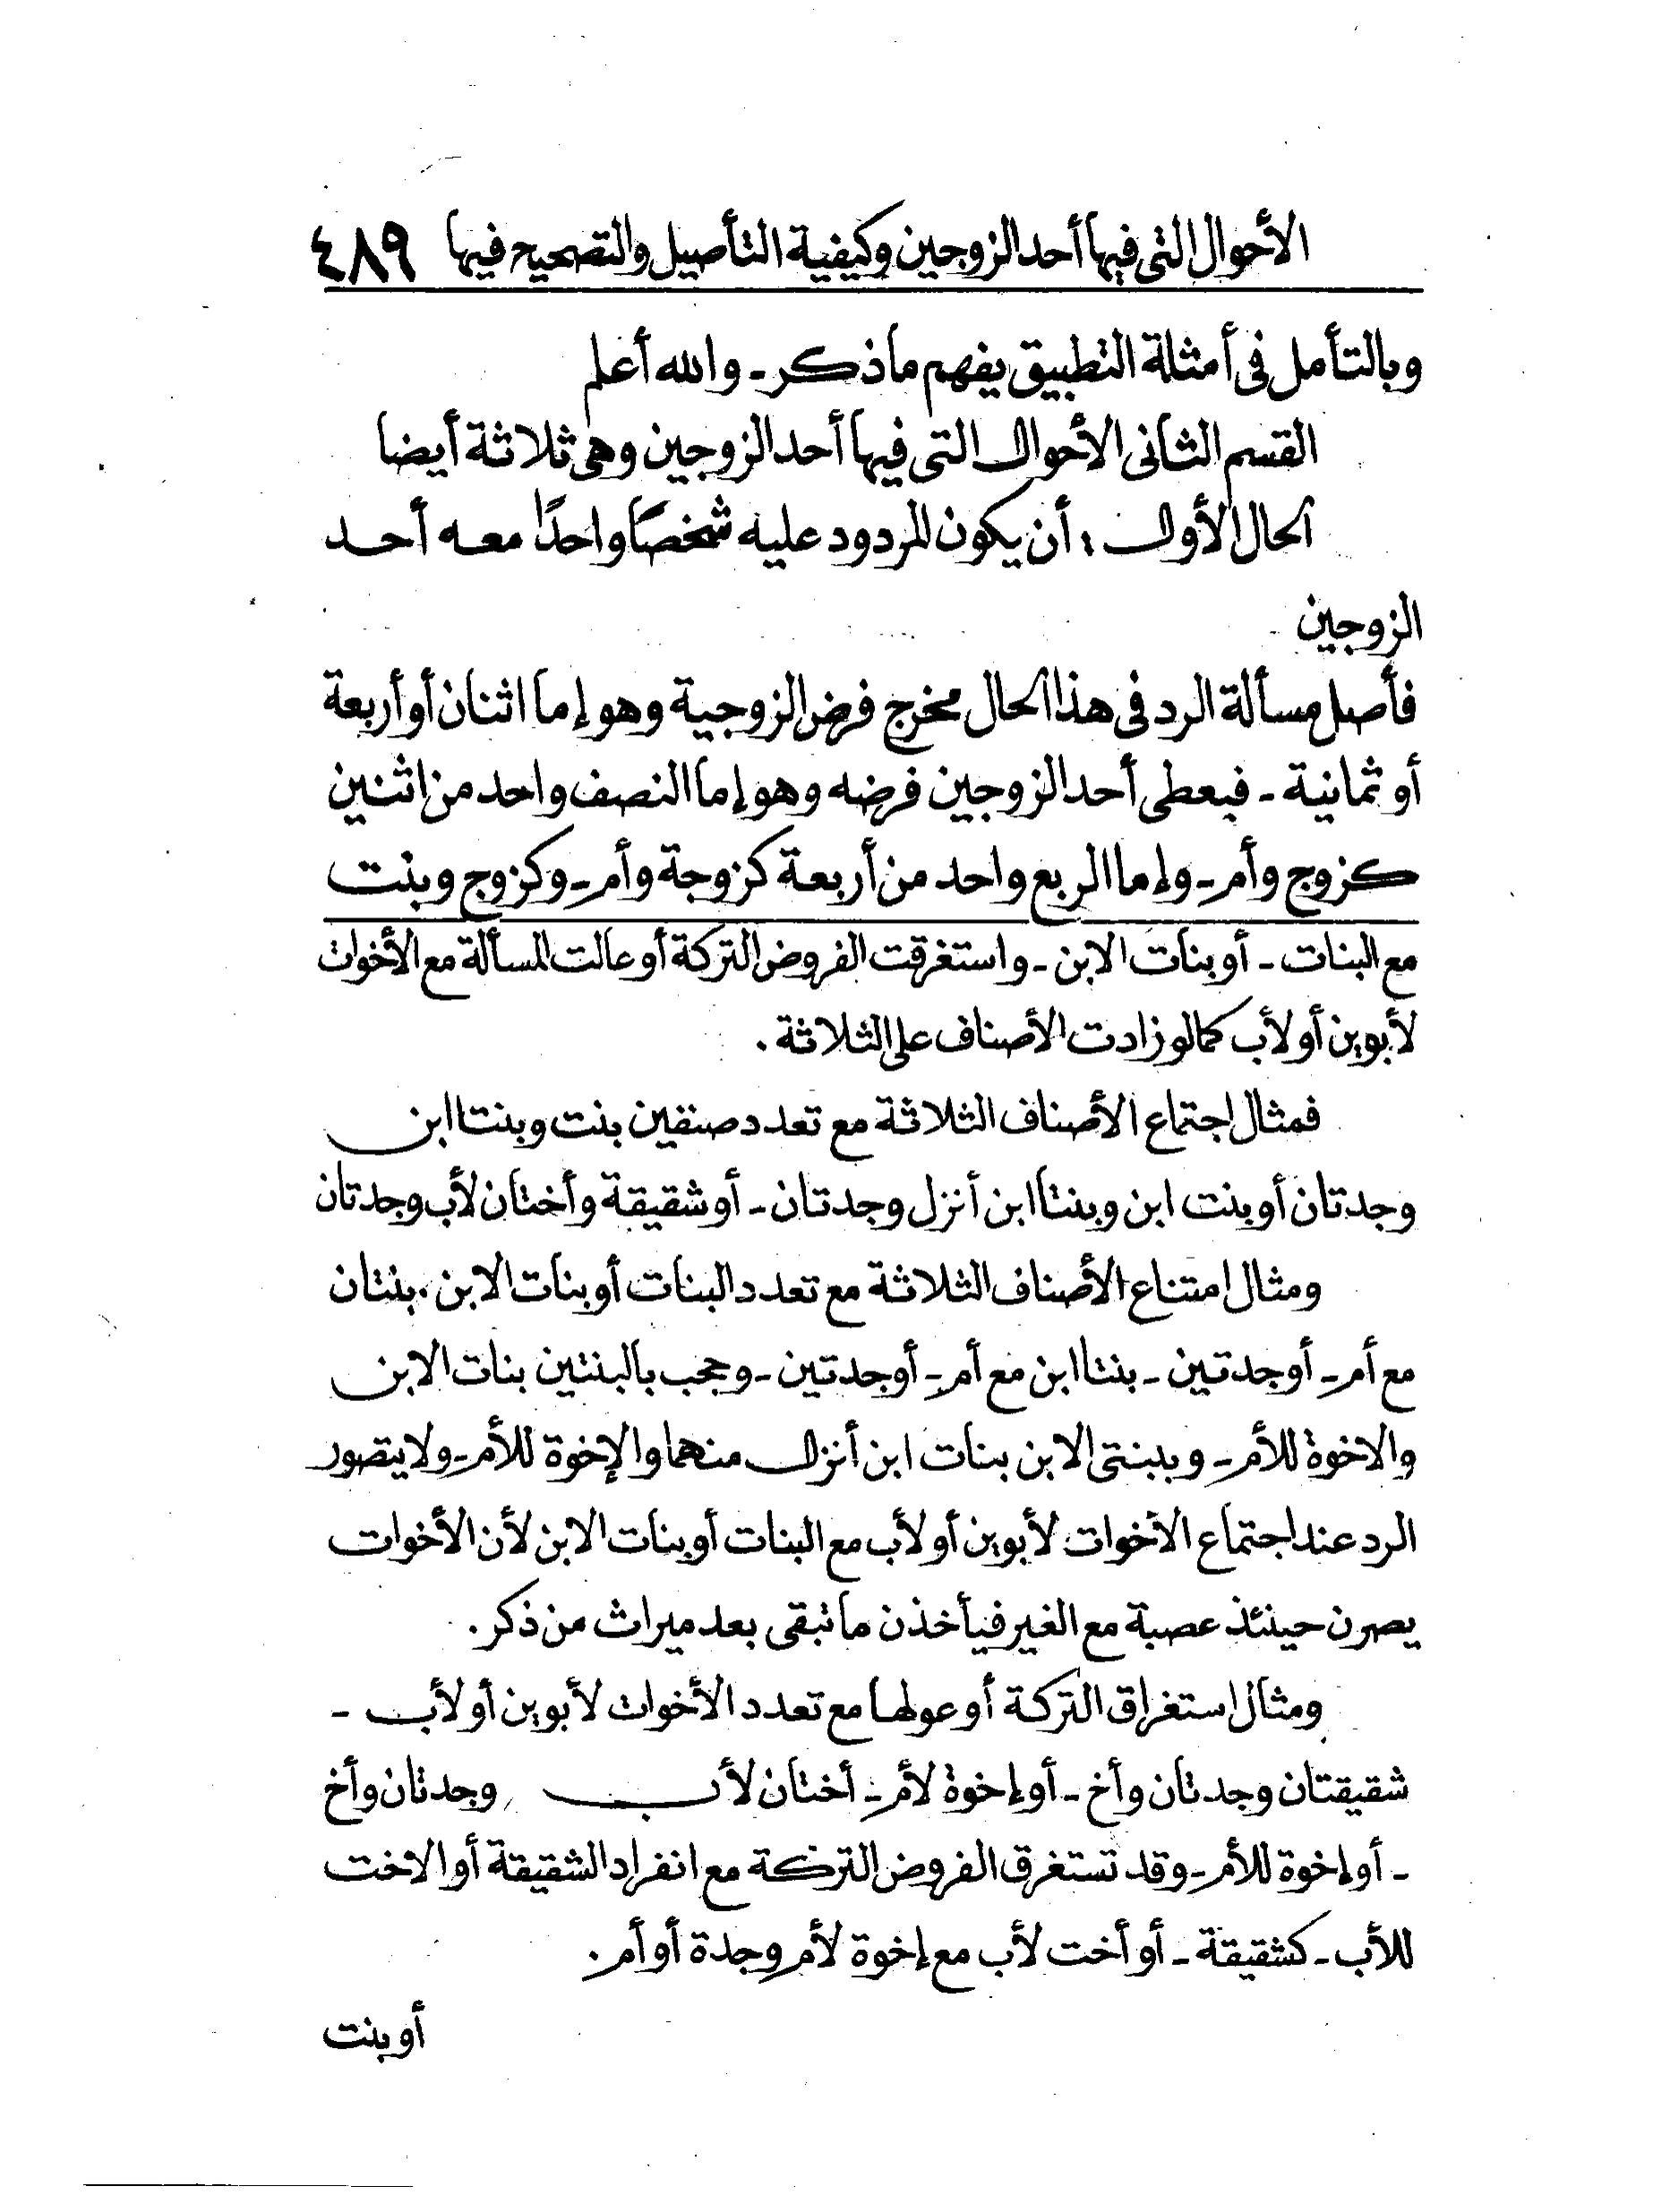 الأحوال التى فيها أحد الزوجين وكيفية التأصيل والتصحيح فيها ٤٨٩
وبالتأمل فى أمثلة التطبيق يفهم ماذكر - والله أعلم
القسم الثانى الأحوال التى فيها أحد الزوجين وهى ثلاثة أيضا
الحال الأول : أن يكون المردود عليه شخصًا واحدًا معه أحد
الزوجين
فأصل مسألة الرد فى هذا الحال مخرج فرض الزوجية وهو إما اثنان أو أربعة
أو ثمانية - فيعطى أحد الزوجين فرضه وهو إما النصف واحد من اثنين
كزوج وأم - وإما الربع واحد من أربعة كزوجة وأم - وكزوج وبنت
مع البنات - أو بنات الابن - واستغرقت الفروض التركة أو عالت المسألة مع الأخوات
لأبوين أو لأب كما لو زادت الأصناف على الثلاثة .
فمثال اجتماع الأصناف الثلاثة مع تعدد صنفين بنت وبنتا ابن
وجدتان أو بنت ابن وبنتا ابن أنزل وجدتان - أو شقيقة وأختان لأب وجدتان
ومثال امتناع الأصناف الثلاثة مع تعدد البنات أو بنات الابن . بنتان
مع أم - أو جدتين - بنتا ابن مع أم - أو جدتين - وحجب بالبنتين بنات الابن
والاخوة للأم - وببنتى الابن بنات ابن أنزل منهما والإخوة للأم - ولا يتصور
الرد عند اجتماع الأخوات لأبوين أو لأب مع البنات أو بنات الابن لأن الأخوات
يصرن حينئذ عصبة مع الغير فيأخذن ما تبقى بعد ميراث من ذكر .
ومثال استغراق التركة أو عولها مع تعدد الأخوات لأبوين أو لأب -
شقيقتان وجدتان وأخ - أو إخوة لأم - أختان لأب وجدتان وأخ
- أو إخوة للأم - وقد تستغرق الفروض التركة مع انفراد الشقيقة أو الاخت
للأب - كشقيقة - أو أخت لأب مع إخوة لأم وجدة أو أم .
أو بنت